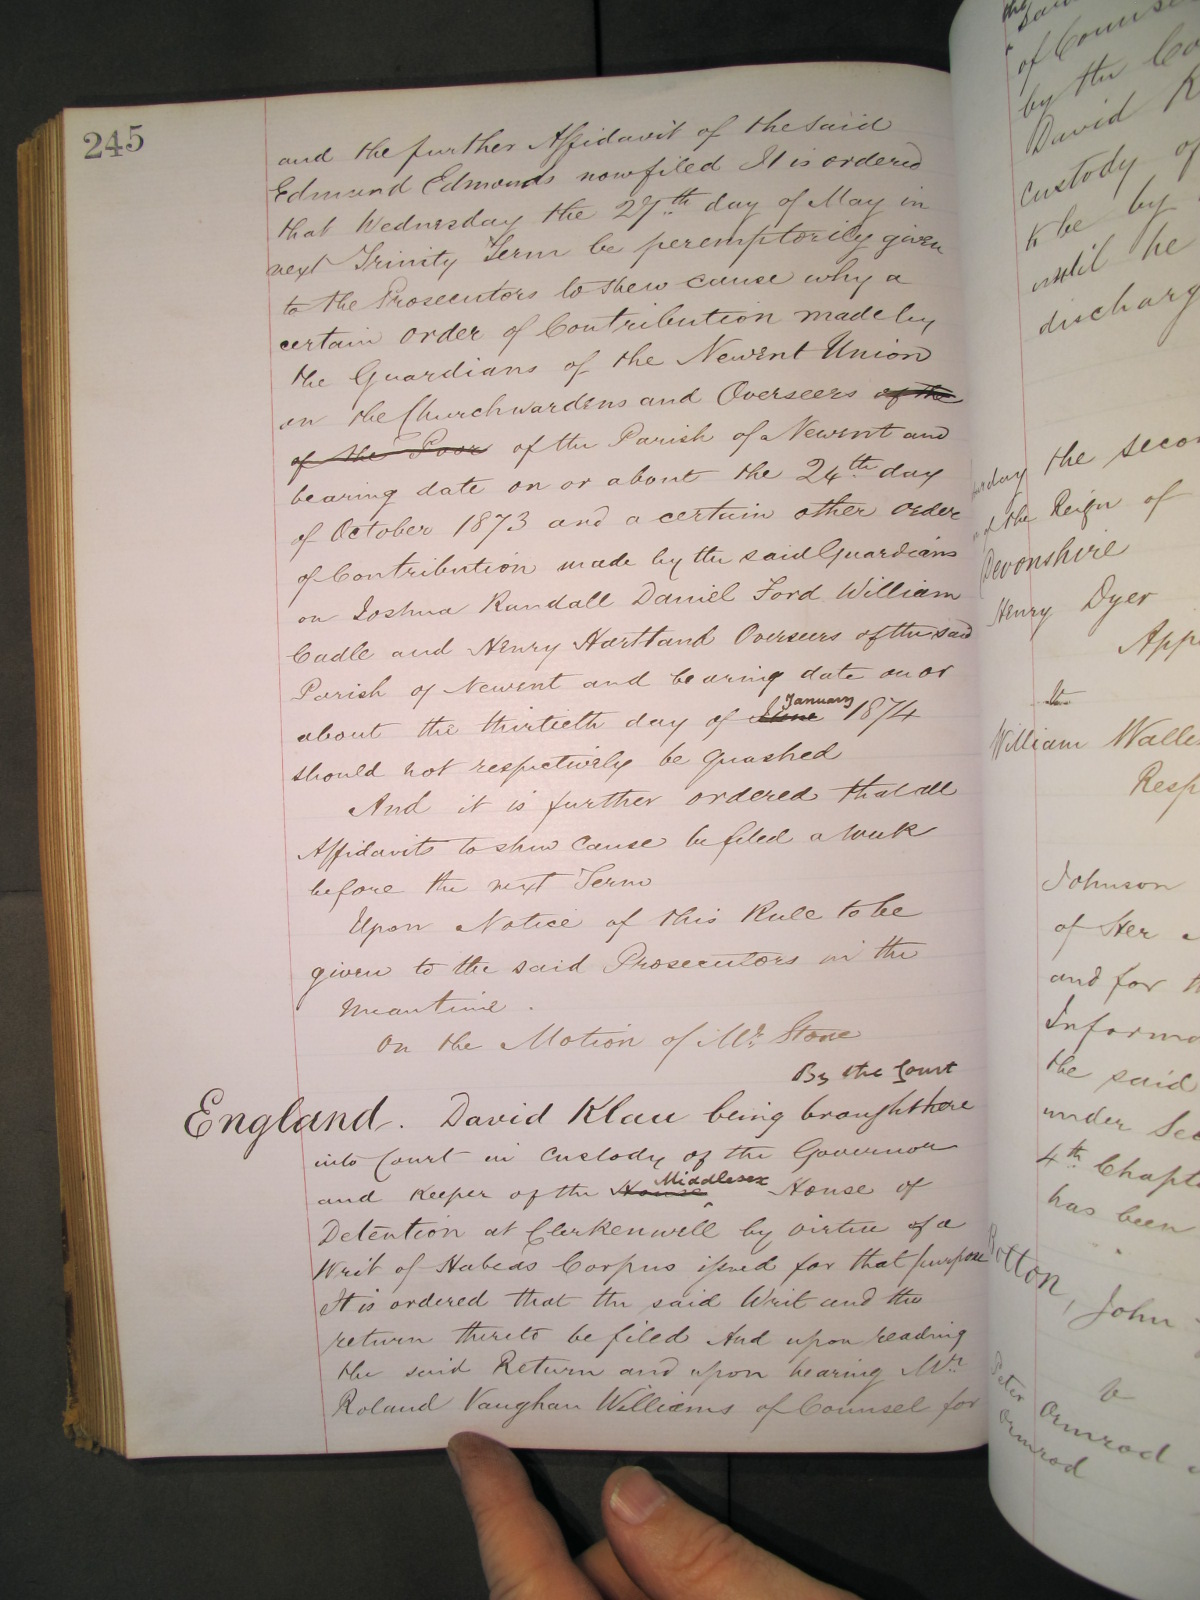 245
and the further Affidavit of the said
Edmund Edmonds now filed It is ordered
that Wednesday the 27th day of May in
next Trinity Term be peremptorily given
to the Prosecutors to shew cause why a
certain order of Contribution made by
the Guardians of the Newent Union
on the Churchwardens and Overseers of the
of the Poor of the Parish of Newent and
bearing date on or about the 24th day
of October 1873 and a certain other order
of Contribution made by the said Guardians
on Joshua Randall Daniel Ford William
Cadle and Henry Hartland Overseers of the said
Parish of Newent and bearing date on or
about the thirtieth day of June January 1874
should not respectively be quashed
And it is further ordered that all
Affidavits to shew cause be filed a week
before the next Term
Upon Notice of this Rule to be
given to the said Prosecutors in the
meantime.
On the Motion of Mr. Stone
By the Court
England. David Klau being brought here
into Court in custody of the Governor
and Keeper of the House Middlesex House of
Detention at Clerkenwell by virtue of a
Writ of Habeas Corpus issued for that purpose
It is ordered that the said Writ and the
return thereto be filed And upon reading
the said Return and upon hearing Mr.
Roland Vaughan Williams of Counsel for
the
of Counse
by the Co
David K
custody of
to be by
until he
discharg
day the secon
of the Reign of
Devonshire
Henry Dyer
Appe
the
William Walle
Resp
Johnson
of Her
and for th
Informa
the said
under Sec
4th Chapte
has been
Botton, John
v
Peter Ormrod
Ormrod